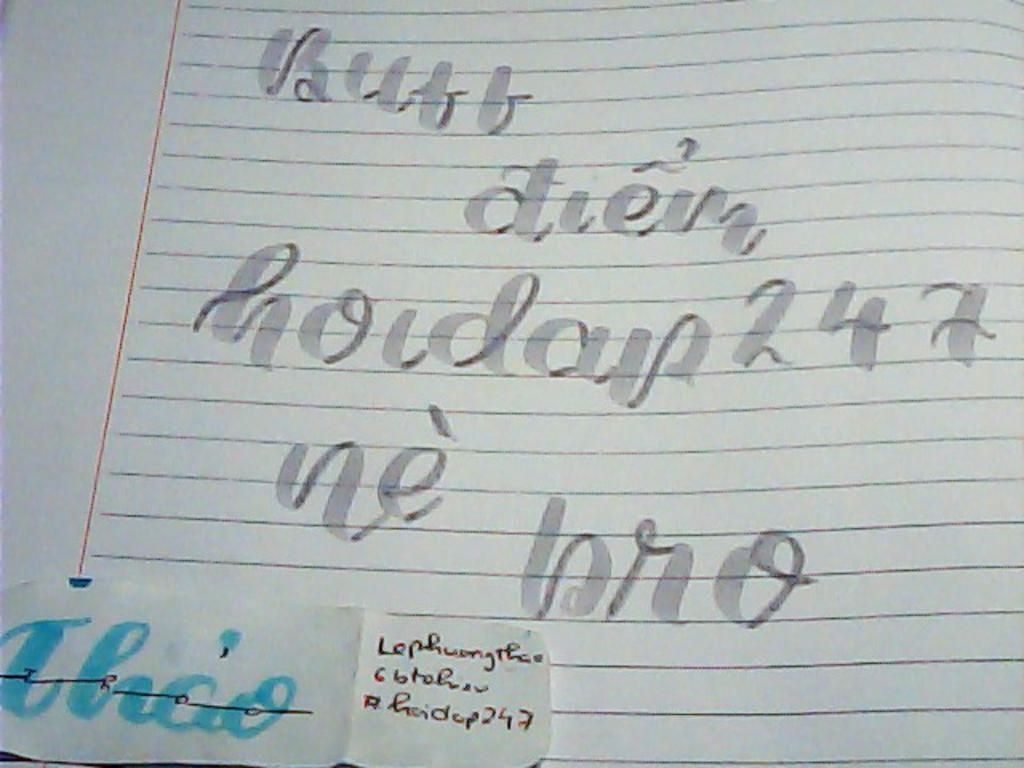 Buff
điểm
hoidap247
nè
bro
Thảo
Lephuongthao
#hoidap247